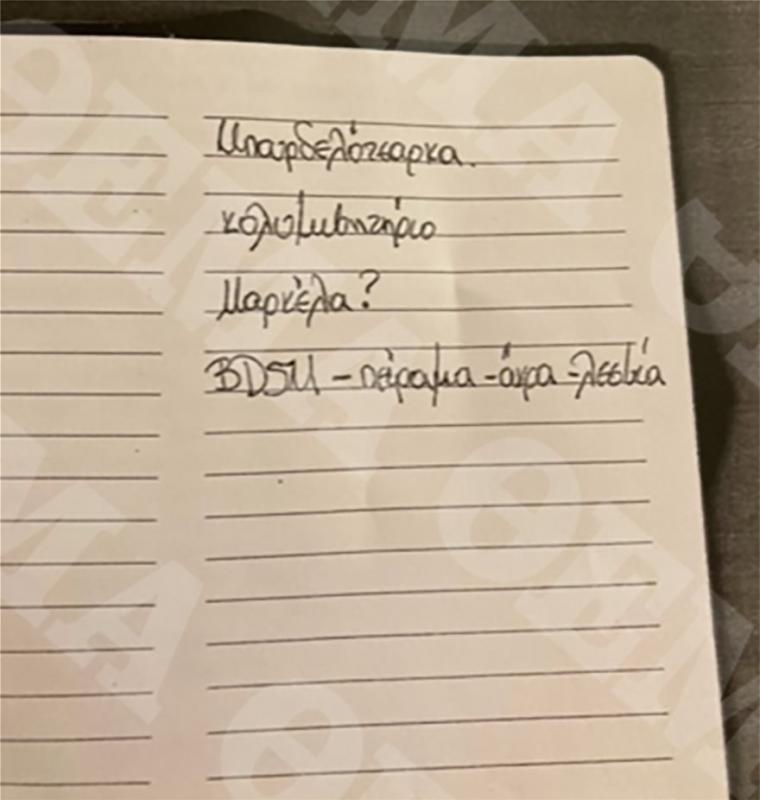 Μπαρδελότσαρκα.
κολυμβητήριο
Μαρκέλα?
BDSM - πείραμα - άκρα - λεσβία
ΘΕΜΑ
ΘΕΜΑ
ΘΕΜΑ